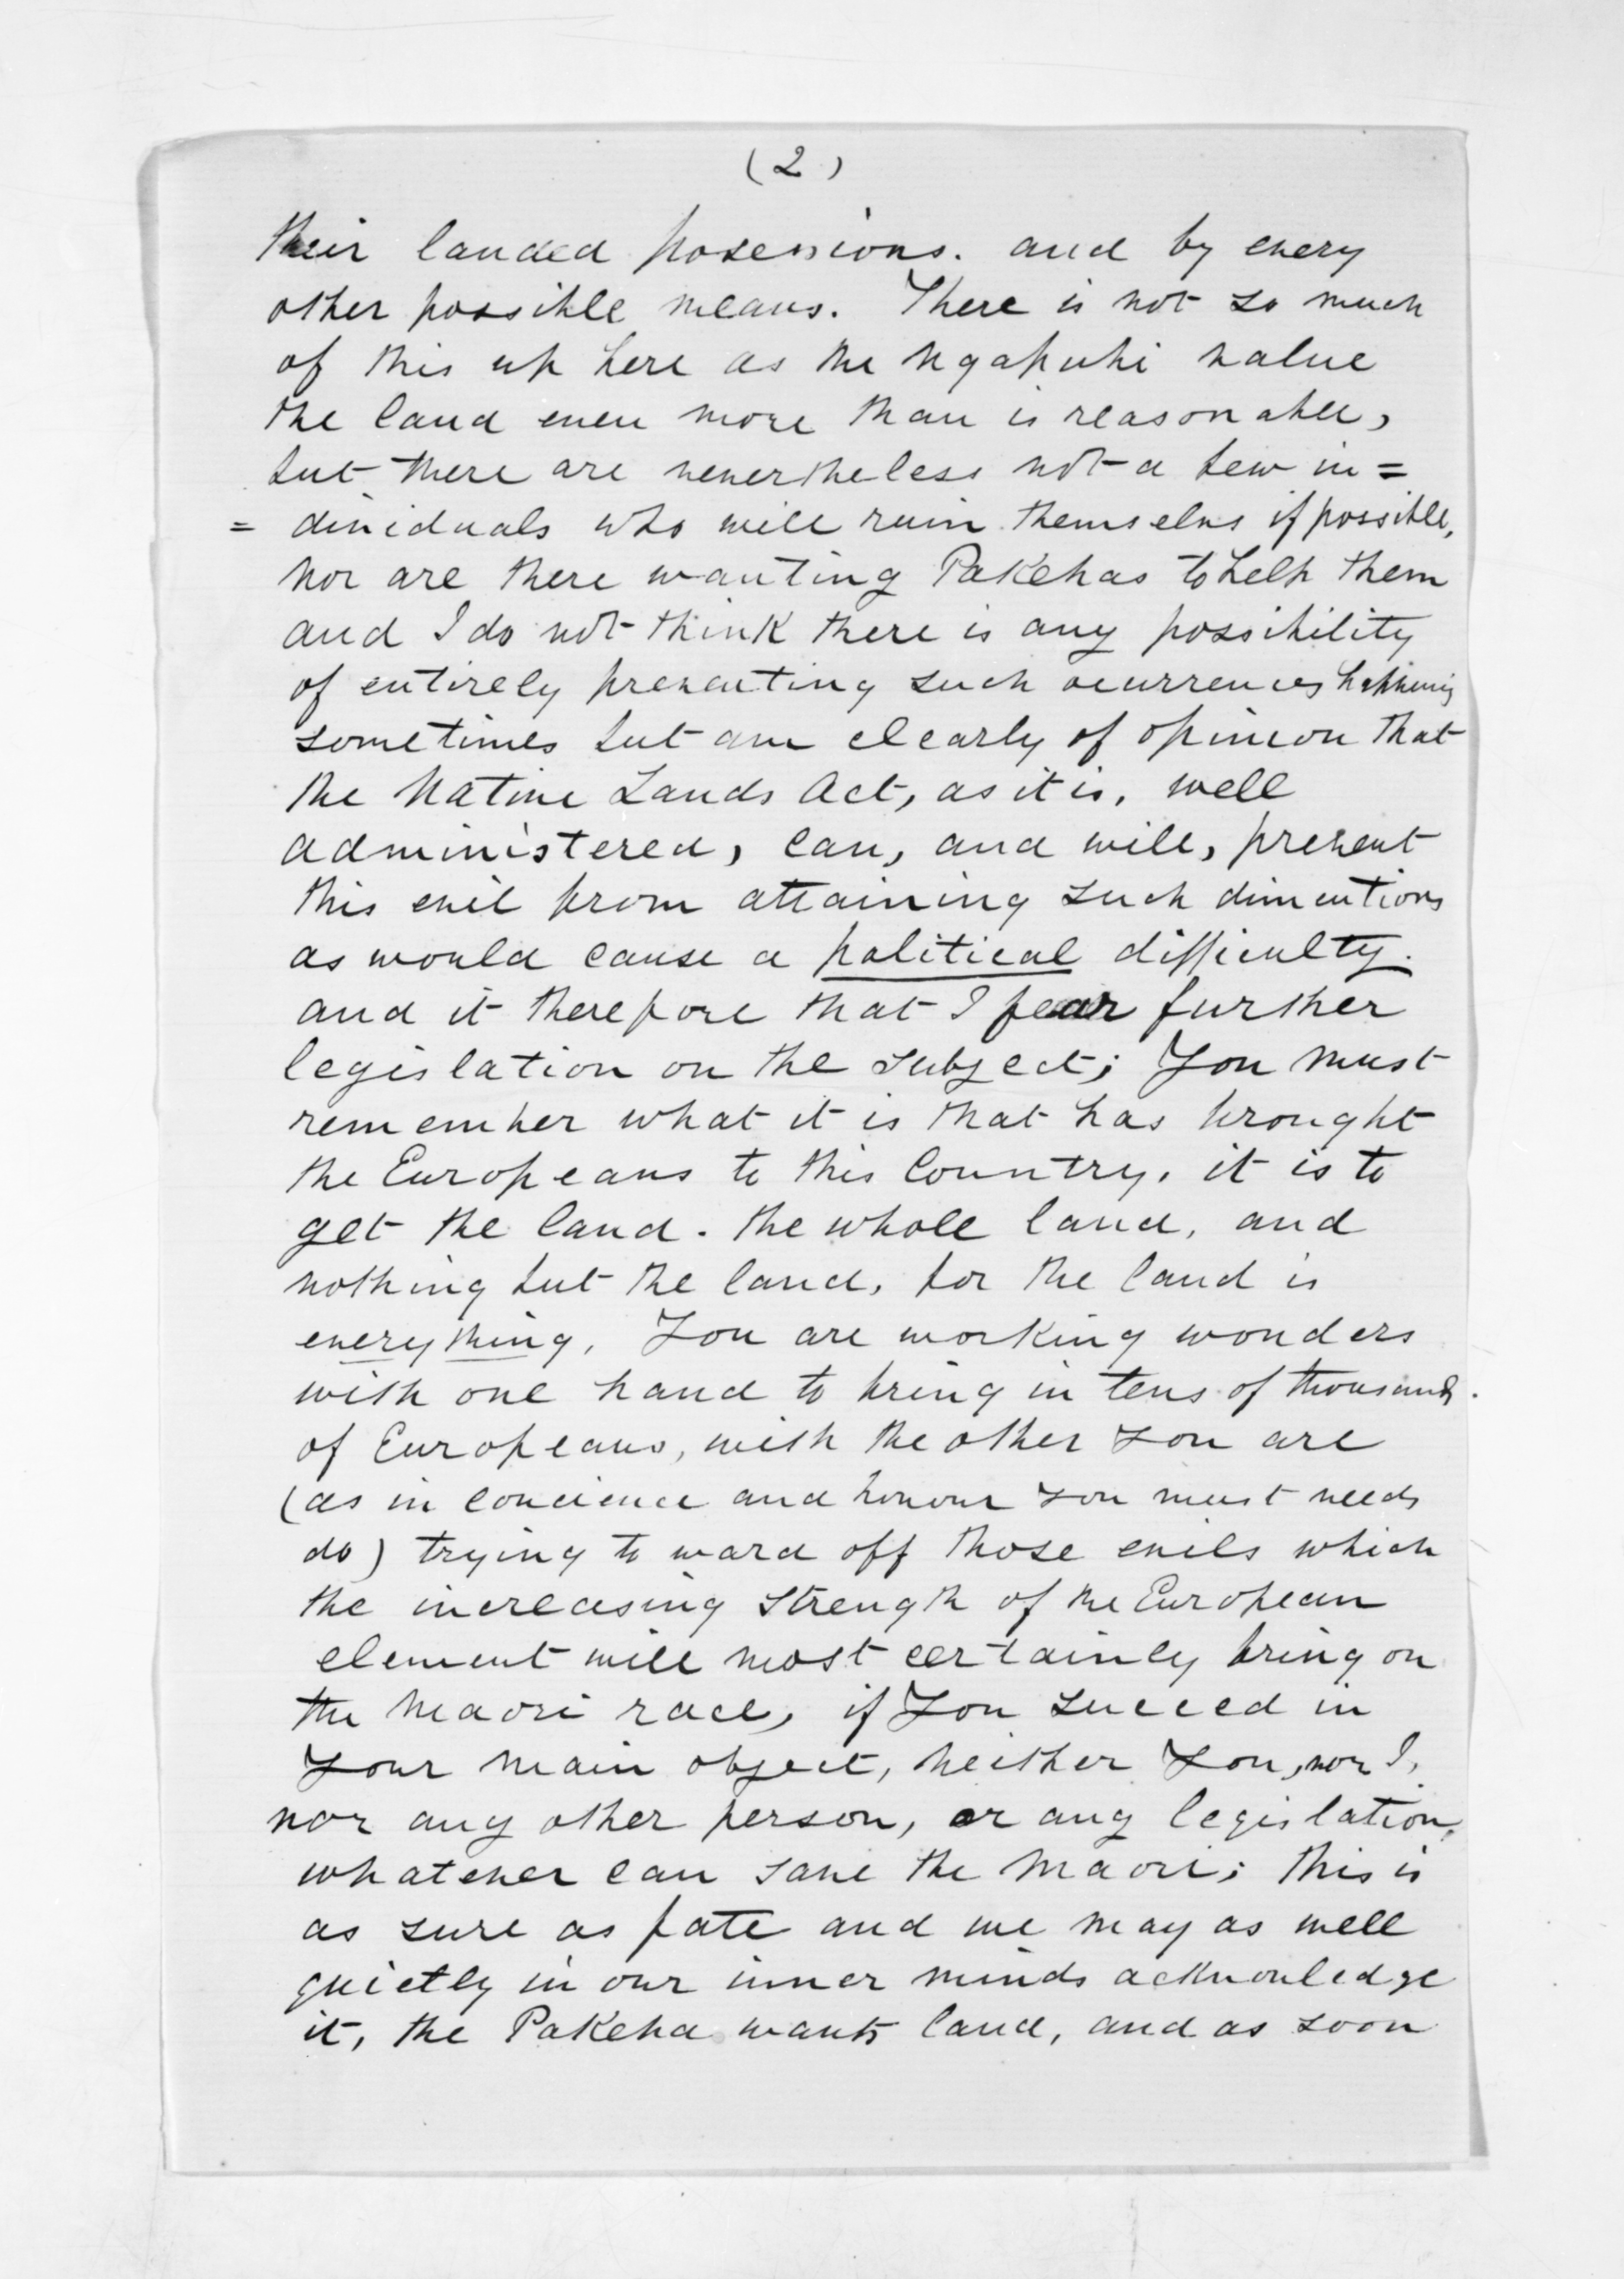 (2)
their landed posessions. and by every
other possible means. There is not so much
of this up here as the Ngapuhi value
the land even more than is reasonable,
but there are nevertheless not a few in=
= dividuals who will ruin themselvs if possible,
nor are there wanting Pakehas to help them
and I do not think there is any possibility
of entirely preventing such ocurrences happening
sometimes but am clearly of opinion that
the Native Lands Act, as it is, well
administered, can, and will, prevent
this evil from attaining such dimentions
as would cause a political difficulty.
and it therefore that I fear further
legislation on the subject; You must
remember what it is that has brought
the Europeans to this Country, it is to
get the land. the whole land, and
nothing but the land, for the land is
everything, You are working wonders
with one hand to bring in tens of thousands.
of Europeans, with the other you are
(as in concience and honour you must needs
do) trying to ward off those evils which
the increasing strength of the European
element will most certainly bring on
the Maori race, if You succeed in
Your main object, neither You, nor I,
nor any other person, or any legislation,
whatever can save the Maori; this is
as sure as fate and we may as well
quietly in our inner minds acknowledge
it, the Pakeha wants land, and as soon